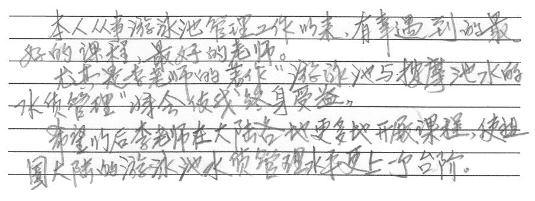 本人从事游泳池管理工作以来,有幸遇到的最
好的课程,最好的老师。
尤其是李老师的著作"游泳池与按摩池水的
水质管理"课会使我终身受益。
希望以后李老师在大陆各地更多地开展课程,使祖
国大陆的游泳池水质管理水平更上一个台阶。